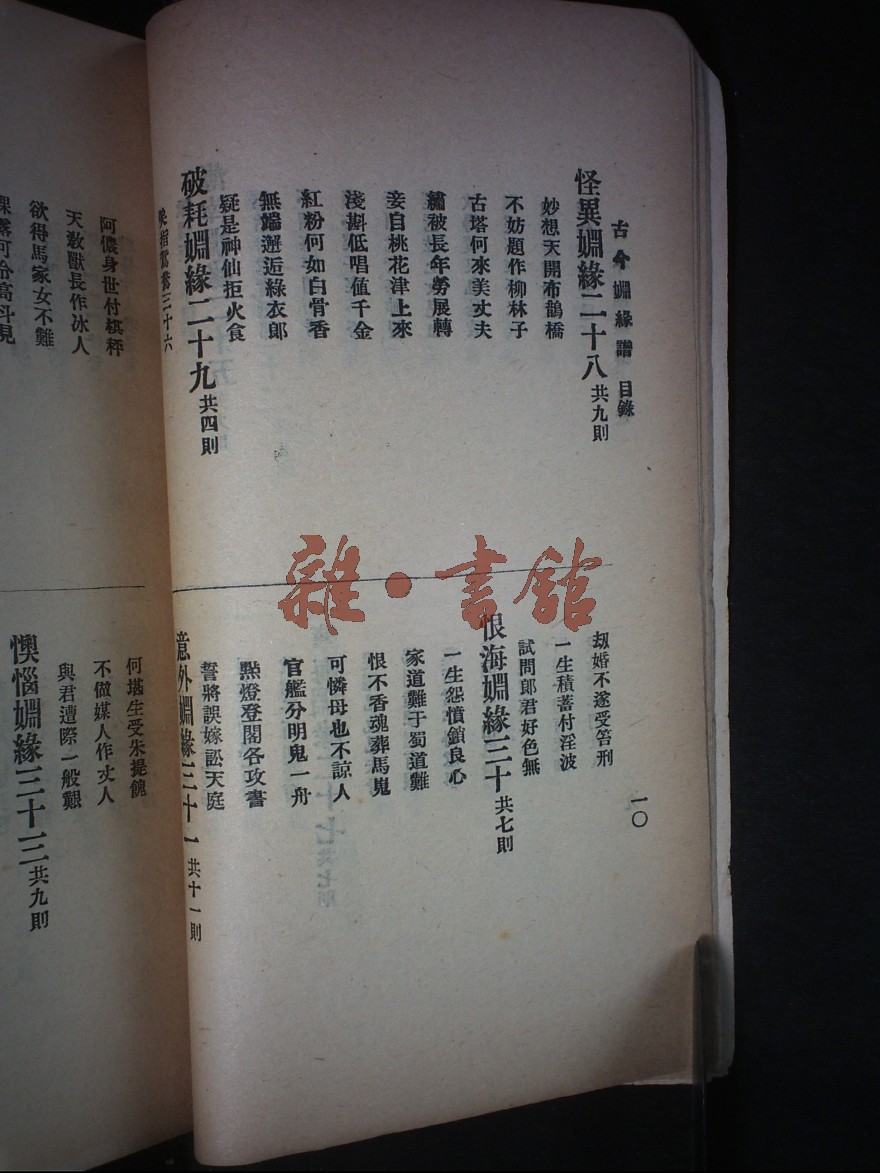 古今婣緣譜 目錄
怪異婣緣二十八 共九則
妙想天開布鵲橋
不妨題作柳林子
古塔何來美丈夫
繡被長年勞展轉
妾自桃花津上來
淺斟低唱值千金
紅粉何如白骨香
無端邂逅綠衣郎
疑是神仙拒火食
破耗婣緣二十九 共四則
鴛鴦三十六
劫婚不遂受笞刑
一生積蓄付淫波
試問郎君好色無
恨海婣緣三十 共七則
一生怨憤鎖良心
家道難于蜀道難
恨不香魂葬馬嵬
可憐母也不諒人
官艦分明鬼一舟
㸃燈登閣各攻書
誓將誤嫁訟天庭
意外婣緣三十一 共十一則
一〇
阿儂身世付棋枰
天敎獸長作冰人
欲得馬家女不難
何堪生受朱提餽
不做媒人作丈人
與君遭際一般艱
懊惱婣緣三十三 共九則
雜·書館